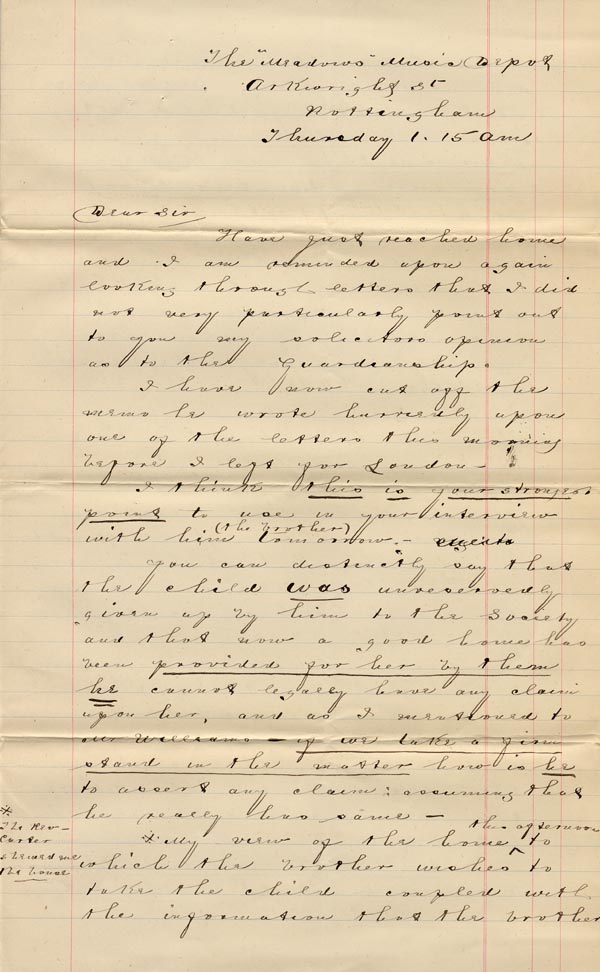 The "Meadows" Music Depot
Arkwright St
Nottingham
Thursday 1.15 am
Dear Sir
Have just reached home
and I am reminded upon again
looking through letters that I did
not very particularly point out
to you my solicitors opinion
as to the Guardianship.
I have now cut off the
memo he wrote hurriedly upon
one of the letters this morning
before I left for London -
I think this is your strongest
point to use in your interview
with him (the brother) tomorrow. -
You can distinctly say that
the child was unreservedly
given up by him to the Society
and that now a good home has
been provided for her by them
he cannot legally have any claim
upon her, and as I mentioned to
Mr Williams - if we take a firm
stand in the matter how is he
to assert any claim: assuming that
he really has same -
* My view of the home this afternoon to
which the brother wishes to
take the child coupled with
the information that the brother
*
The Rev-
Carter
shewed me
the house